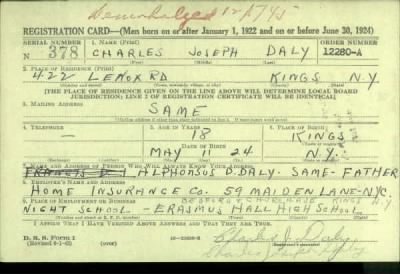 REGISTRATION CARD—(Men born on or after January 1, 1922 and on or before June 30, 1924)
SERIAL NUMBER 1. NAME (Print) ORDER NUMBER
N 378 CHARLES JOSEPH DALY 12280-A
2. PLACE OF RESIDENCE (Print)
422 LENOX RD KINGS N.Y.
[THE PLACE OF RESIDENCE GIVEN ON THE LINE ABOVE WILL DETERMINE LOCAL BOARD
JURISDICTION; LINE 2 OF REGISTRATION CERTIFICATE WILL BE IDENTICAL]
3. MAILING ADDRESS
SAME
4. TELEPHONE 5. AGE IN YEARS 6. PLACE OF BIRTH
— 18 KINGS
DATE OF BIRTH
MAY 24 N.Y.
7. NAME AND ADDRESS OF PERSON WHO WILL ALWAYS KNOW YOUR ADDRESS
FRANCIS D. ALPHONSUS D. DALY - SAME - FATHER
8. EMPLOYER'S NAME AND ADDRESS
HOME INSURANCE CO. 59 MAIDEN LANE - NYC.
9. PLACE OF EMPLOYMENT OR BUSINESS KINGS N.Y.
NIGHT SCHOOL - ERASMUS HALL HIGH SCHOOL
I AFFIRM THAT I HAVE VERIFIED ABOVE ANSWERS AND THAT THEY ARE TRUE.
D. S. S. FORM 1
Charles J. Daly